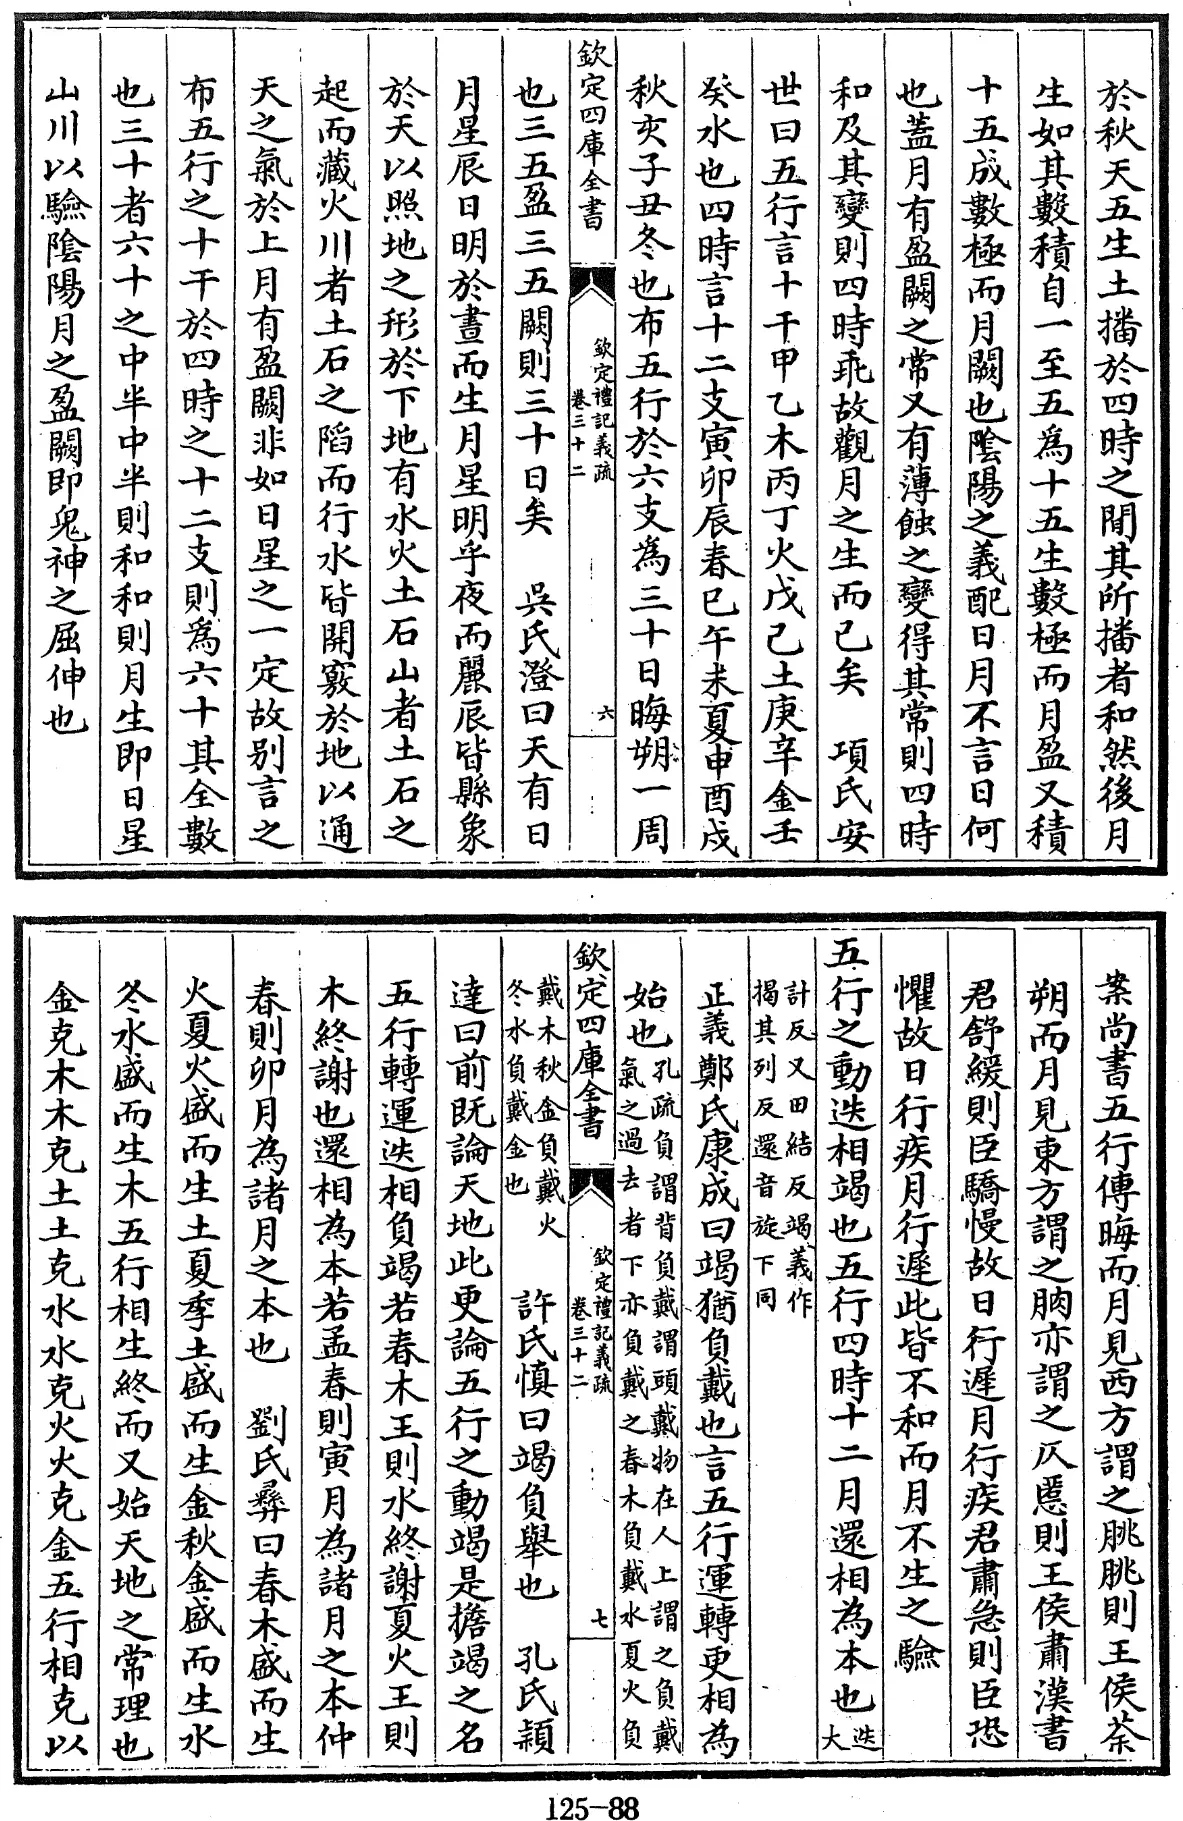 於秋天五生土播於四時之間其所播者和然後月
生如其數積自一至五為十五生數極而月盈又積
十五成數極而月闕也陰陽之義配日月不言日何
也蓋月有盈闕之常又有薄蝕之變得其常則四時
和及其變則四時乖故觀月之生而已矣　項氏安
世曰五行言十干甲乙木丙丁火戊己土庚辛金壬
癸水也四時言十二支寅卯辰春巳午未夏申酉戌
秋亥子丑冬也布五行於六支為三十日晦朔一周
欽定四庫全書
欽定禮記義疏
卷三十二
六
也三五盈三五闕則三十日矣　吳氏澄曰天有日
月星辰日明於晝而生月星明乎夜而麗辰皆縣象
於天以照地之形於下地有水火土石山者土石之
起而藏火川者土石之陷而行水皆開竅於地以通
天之氣於上月有盈闕非如日星之一定故別言之
布五行之十干於四時之十二支則為六十其全數
也三十者六十之中半中半則和和則月生即日星
山川以驗陰陽月之盈闕即鬼神之屈伸也
案尚書五行傳晦而月見西方謂之朓朓則王侯荼
朔而月見東方謂之朒亦謂之仄慝則王侯肅漢書
君舒緩則臣驕慢故日行遲月行疾君肅急則臣恐
懼故日行疾月行遲此皆不和而月不生之驗
五行之動迭相竭也五行四時十二月還相為本也迭大
計反又田結反竭義作
揭其列反還音旋下同
正義鄭氏康成曰竭猶負戴也言五行運轉更相為
始也孔疏負謂背負戴謂頭戴物在人上謂之負戴
氣之過去者下亦負戴之春木負戴水夏火負
欽定四庫全書
欽定禮記義疏
卷三十二
七
戴木秋金負戴火
冬水負戴金也　許氏慎曰竭負舉也　孔氏穎
達曰前既論天地此更論五行之動竭是擔竭之名
五行轉運迭相負竭若春木王則水終謝夏火王則
木終謝也還相為本若孟春則寅月為諸月之本仲
春則卯月為諸月之本也　劉氏彝曰春木盛而生
火夏火盛而生土夏季土盛而生金秋金盛而生水
冬水盛而生木五行相生終而又始天地之常理也
金克木木克土土克水水克火火克金五行相克以
125-88